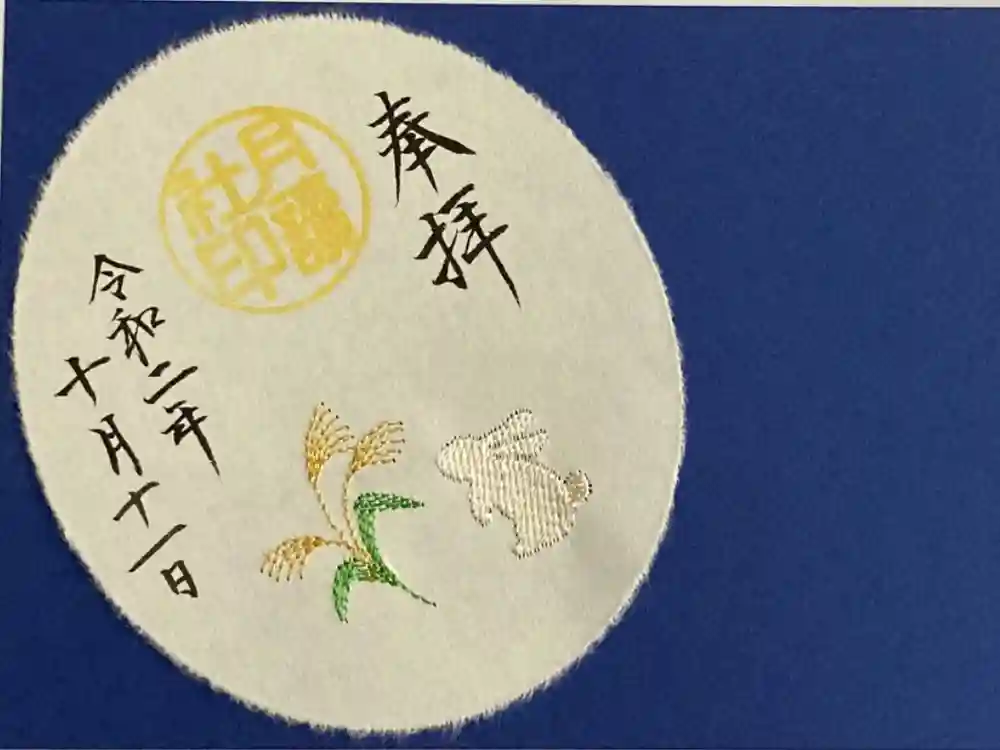 奉拝
月
社印
令和二年
十月十一日